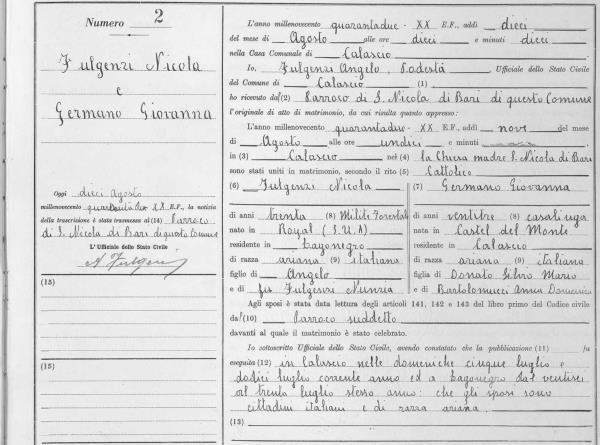 Numero 2
Fulgenzi Nicola
e
Germano Giovanna
Oggi dieci agosto
millenovecento quarantadue XX E.F., la notizia
della trascrizione è stata trasmessa al (14) Parroco
di S. Nicola di Bari di questo Comune
L'Ufficiale dello Stato Civile
A Fulgenzi
(15)
(15)
L'anno millenovecento quarantadue - XX E.F., addì dieci
del mese di Agosto alle ore dieci e minuti dieci
nella Casa Comunale di Calascio
Io, Fulgenzi Angelo, Podestà Ufficiale dello Stato Civile
del Comune di Calascio (1)
ho ricevuto dal (2) Parroco di S. Nicola di Bari di questo Comune
l'originale di atto di matrimonio, da cui risulta quanto appresso:
L'anno millenovecento quarantadue - XX E.F., addì nove del mese
di Agosto alle ore undici e minuti
in (3) Calascio nel (4) la Chiesa madre S. Nicola di Bari
sono stati uniti in matrimonio, secondo il rito (5) Cattolico
(6) Fulgenzi Nicola
di anni trenta (8) Milite Forestale
nato in Royal (S.U.A)
residente in Lagonegro
di razza ariana (9) italiana
figlio di Angelo
e di fu Fulgenzi Nunzia
(7) Germano Giovanna
di anni ventitre (8) casalinga
nata in Castel del Monte
residente in Calascio
di razza ariana (9) italiana
figlia di Donato Silvio Mario
e di Bartolomucci Anna Domenica
Agli sposi è stata data lettura degli articoli 141, 142 e 143 del libro primo del Codice civile
dal (10) Parroco suddetto
davanti al quale il matrimonio è stato celebrato.
Io sottoscritto Ufficiale dello Stato Civile, avendo constatato che la pubblicazione (11) fu
eseguita (12) in Calascio nelle domeniche cinque luglio e
dodici luglio corrente anno ed a Lagonegro dal ventisei
al trenta luglio stesso anno: che gli sposi sono
cittadini italiani e di razza ariana.
(13)